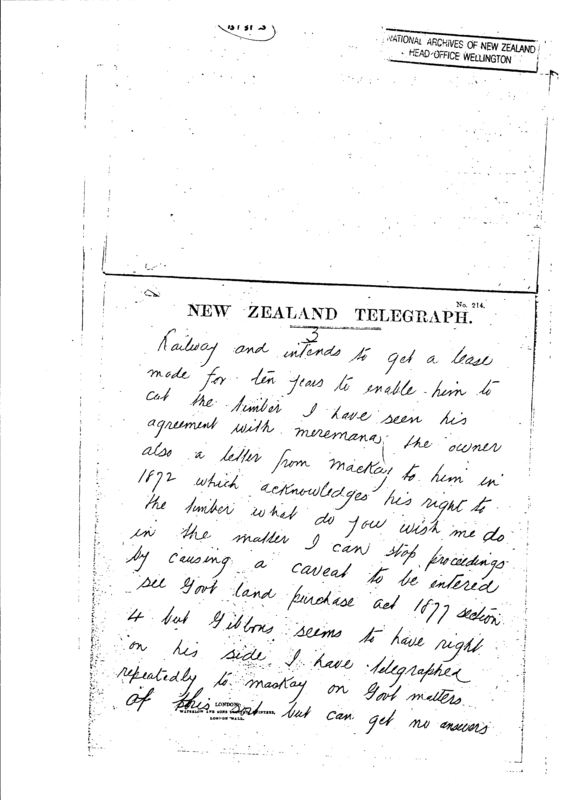 NATIONAL ARCHIVES OF NEW ZEALAND
HEAD OFFICE WELLINGTON
No. 214.
NEW ZEALAND TELEGRAPH.
3
Railway and intends to get a lease
made for ten years to enable him to
cut the timber I have seen his
agreement with meremana the owner
also a letter from Mackay to him in
1872 which acknowledges his right to
the timber what do you wish me do
in the matter I can stop proceedings
by causing a caveat to be entered
see Govt land purchase act 1877 section
4 but Gibbons seems to have right
on his side I have telegraphed
repeatedly to mackay on Govt matters
of this sort but can get no answers
LONDON:
WATERLOW AND SONS LIMITED, PRINTERS,
LONDON WALL.